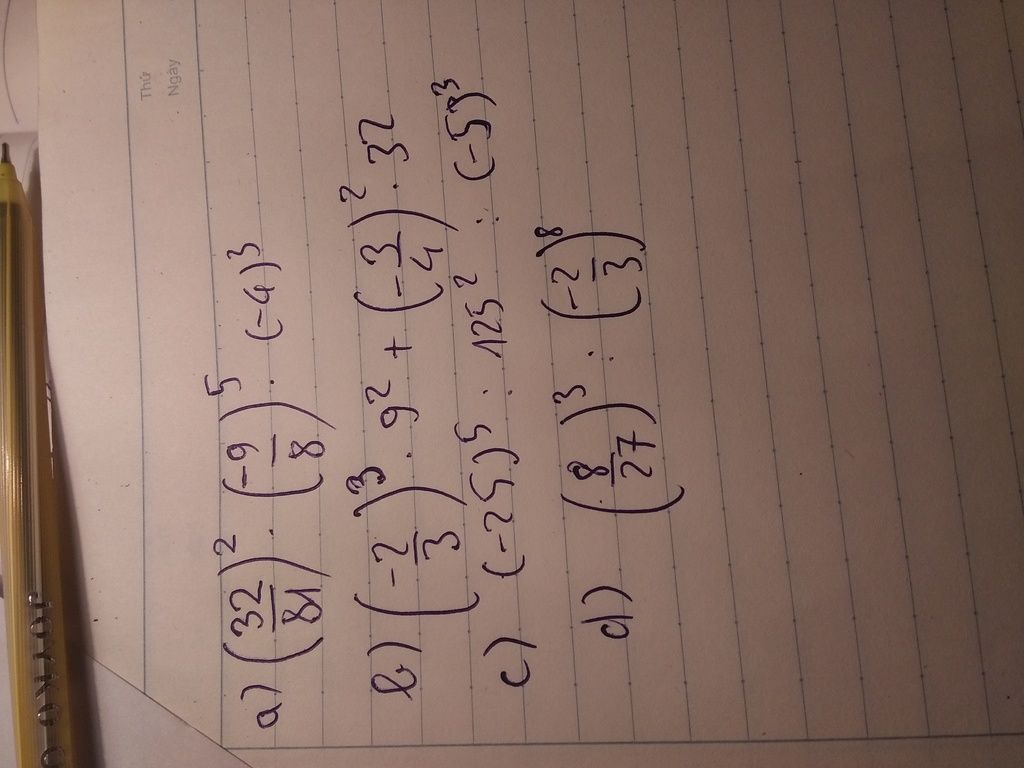 Thứ
Ngày
a) (32/81)² . (-9/8)⁵ . (-4)³
b) (-2/3)³ . 9² + (-3/4)² . 32
c) (-25)⁵ : 125² : (-5)³
d) (8/27)³ : (-2/3)⁸